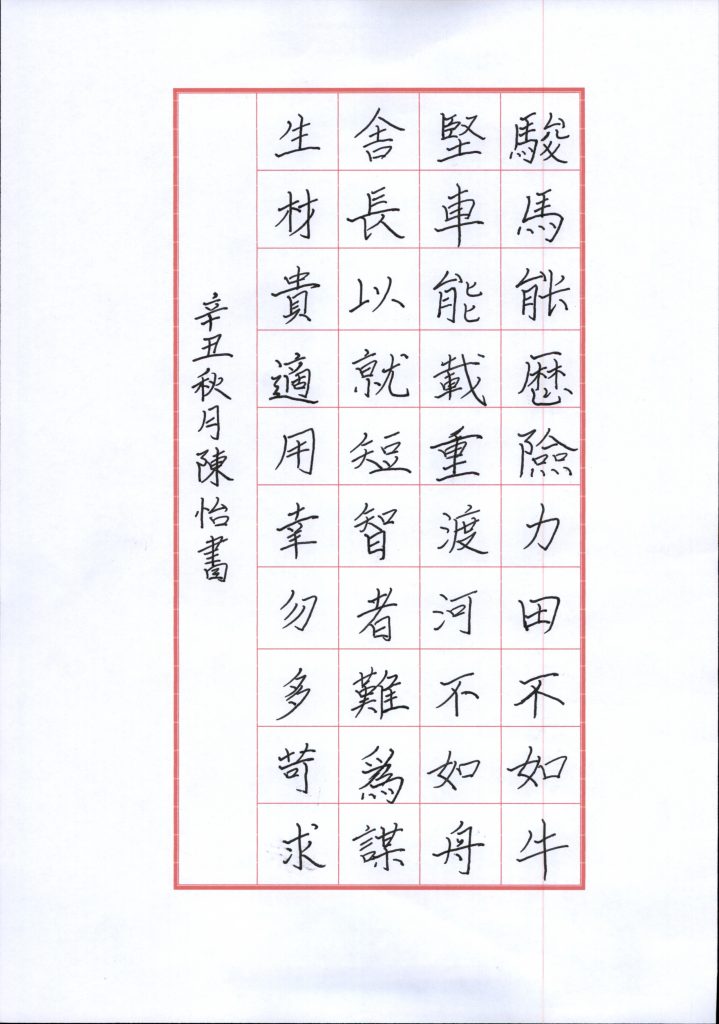 駿馬能歷險力田不如牛
堅車能載重渡河不如舟
舍長以就短智者難爲謀
生材貴適用幸勿多苛求
辛丑秋月陳怡書